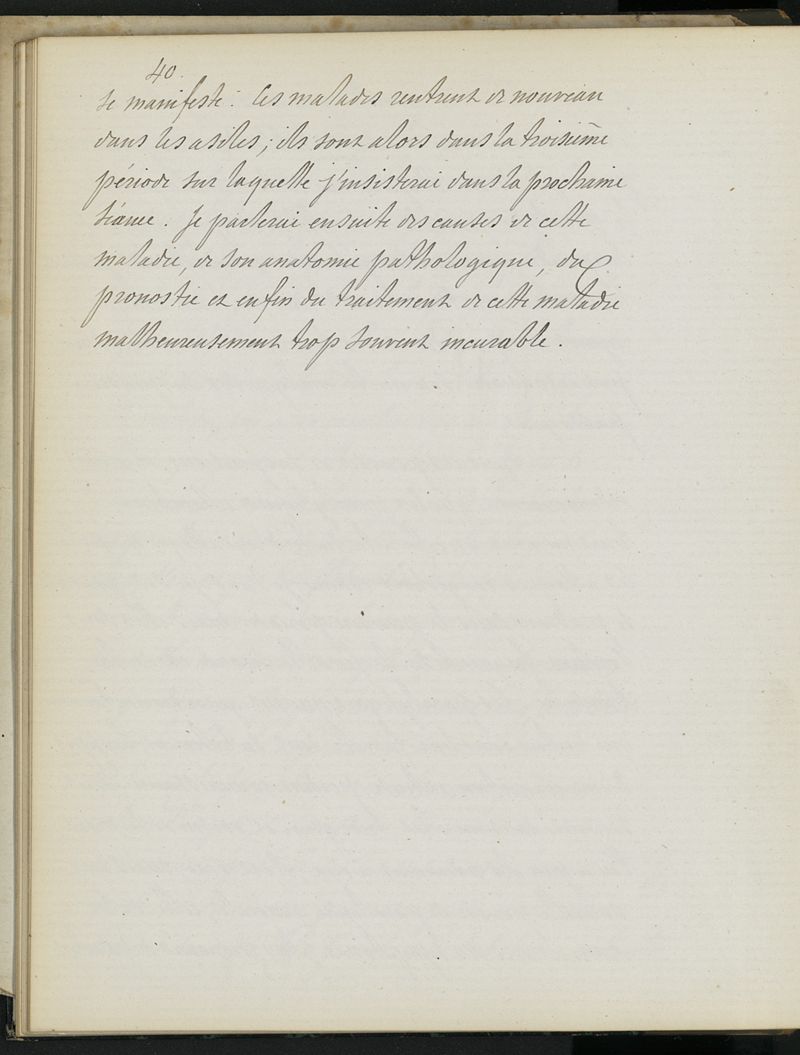 40.
se manifeste. Ces malades rentrent de nouveau
dans les asiles ; ils sont alors dans la troisième
période sur laquelle j'insisterai dans la prochaine
séance. Je parlerai ensuite des causes de cette
maladie, de son anatomie pathologique, du
pronostic et enfin du traitement de cette maladie
malheureusement trop souvent incurable.